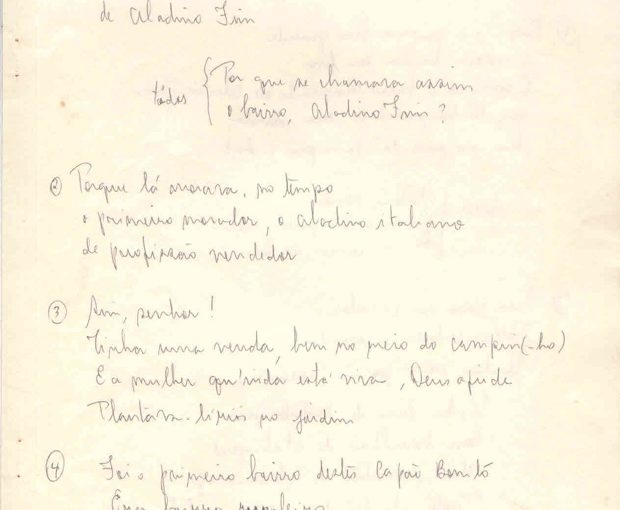 de Aladino Irin
todos { Por que se chamara assim
o bairro, Aladino Irin?
② Porque lá morara, no tempo
o primeiro morador, o Aladino italiano
de profissão vendedor
③ Sim, senhor!
Tinha uma venda, bem no meio do campin(-ho)
E a mulher qu'inda está viva, Deus ajude
Plantava lírios no jardim
④ Foi o primeiro bairro destes Capão Bonitó
Era bairro